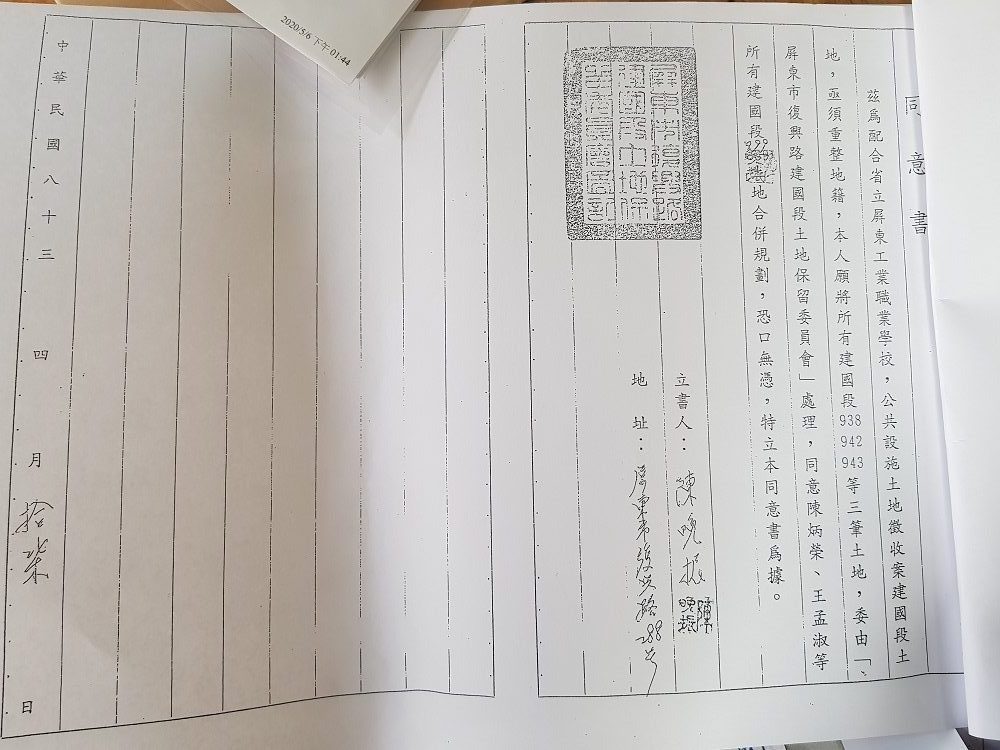 同意書
茲為配合省立屏東工業職業學校，公共設施土地徵收案建國段土
地，亟須重整地籍，本人願將所有建國段938 942 943等三筆土地，委由「、
屏東市復興路建國段土地保留委員會」處理，同意陳炳榮、王孟淑等
所有建國段999地合併規劃，恐口無憑，特立本同意書為據。
立書人：陳晚振
地址：屏東市復興路288号
中華民國八十三 四月拾柒日
2020/5/6 下午 01:44